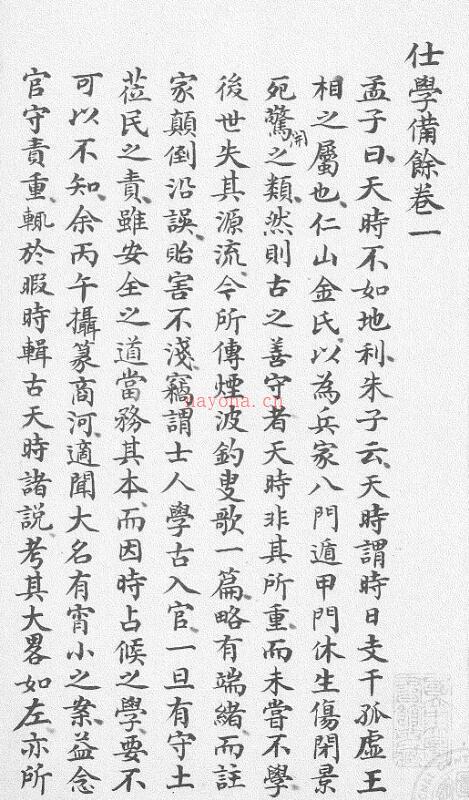 仕學備餘卷一
孟子曰天時不如地利朱子云天時謂時日支干孤虛王
相之屬也仁山金氏以為兵家八門遁甲門休生傷閉景
死驚開之類然則古之善守者天時非其所重而未嘗不學
後世失其源流今所傳煙波釣叟歌一篇略有端緒而註
家顛倒沿誤貽害不淺竊謂士人學古入官一旦有守土
莅民之責雖安全之道當務其本而因時占候之學要不
可以不知余丙午攝篆商河適聞大名有宵小之案益念
官守責重輒於暇時輯古天時諸說考其大畧如左亦所
nayona.cn